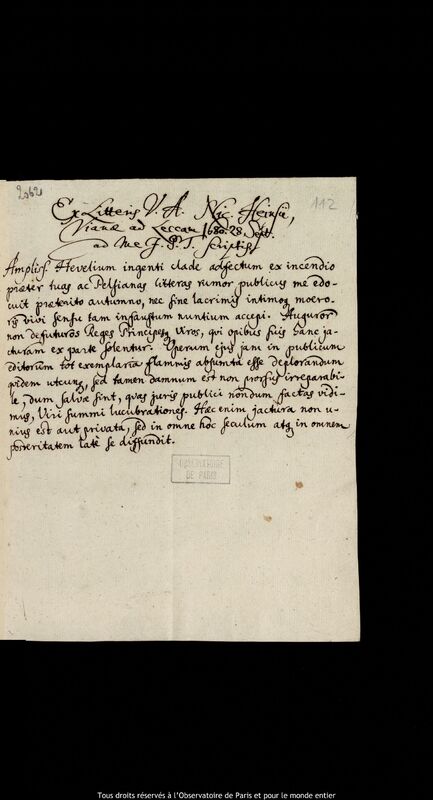 2062
112
Ex Litteris V. A. Nic. Heinsii,
Vianæ ad Leccam 1680. 28 Sept.
ad Me J. P. T. scriptis.
Ampliss. Hevelium ingenti clade adfectum ex incendio
præter tuas ac Pelsianas litteras rumor publicus me edo-
cuit præterito autumno, nec sine lacrimis intimoq mœro-
ris vivi sensu tam infaustum nuntium accepi. Auguror
non defuturos Reges Principesq Viros, qui opibus suis hanc ja-
cturam ex parte solentur. Operum ejus jam in publicum
editorum tot exemplaria flammis absumta esse deplorandum
quidem utcunq, sed tamen damnum est non prorsus irreparabi-
le, dum salvæ sint, quas juris publici nondum factas vidi-
mus, Viri summi lucubrationes. Hæc enim jactura non u-
nius est aut privata, sed in omne hoc seculum atq in omnem
posteritatem late se diffundit.
OBSERVATOIRE
DE PARIS
Tous droits réservés à l'Observatoire de Paris et pour le monde entier